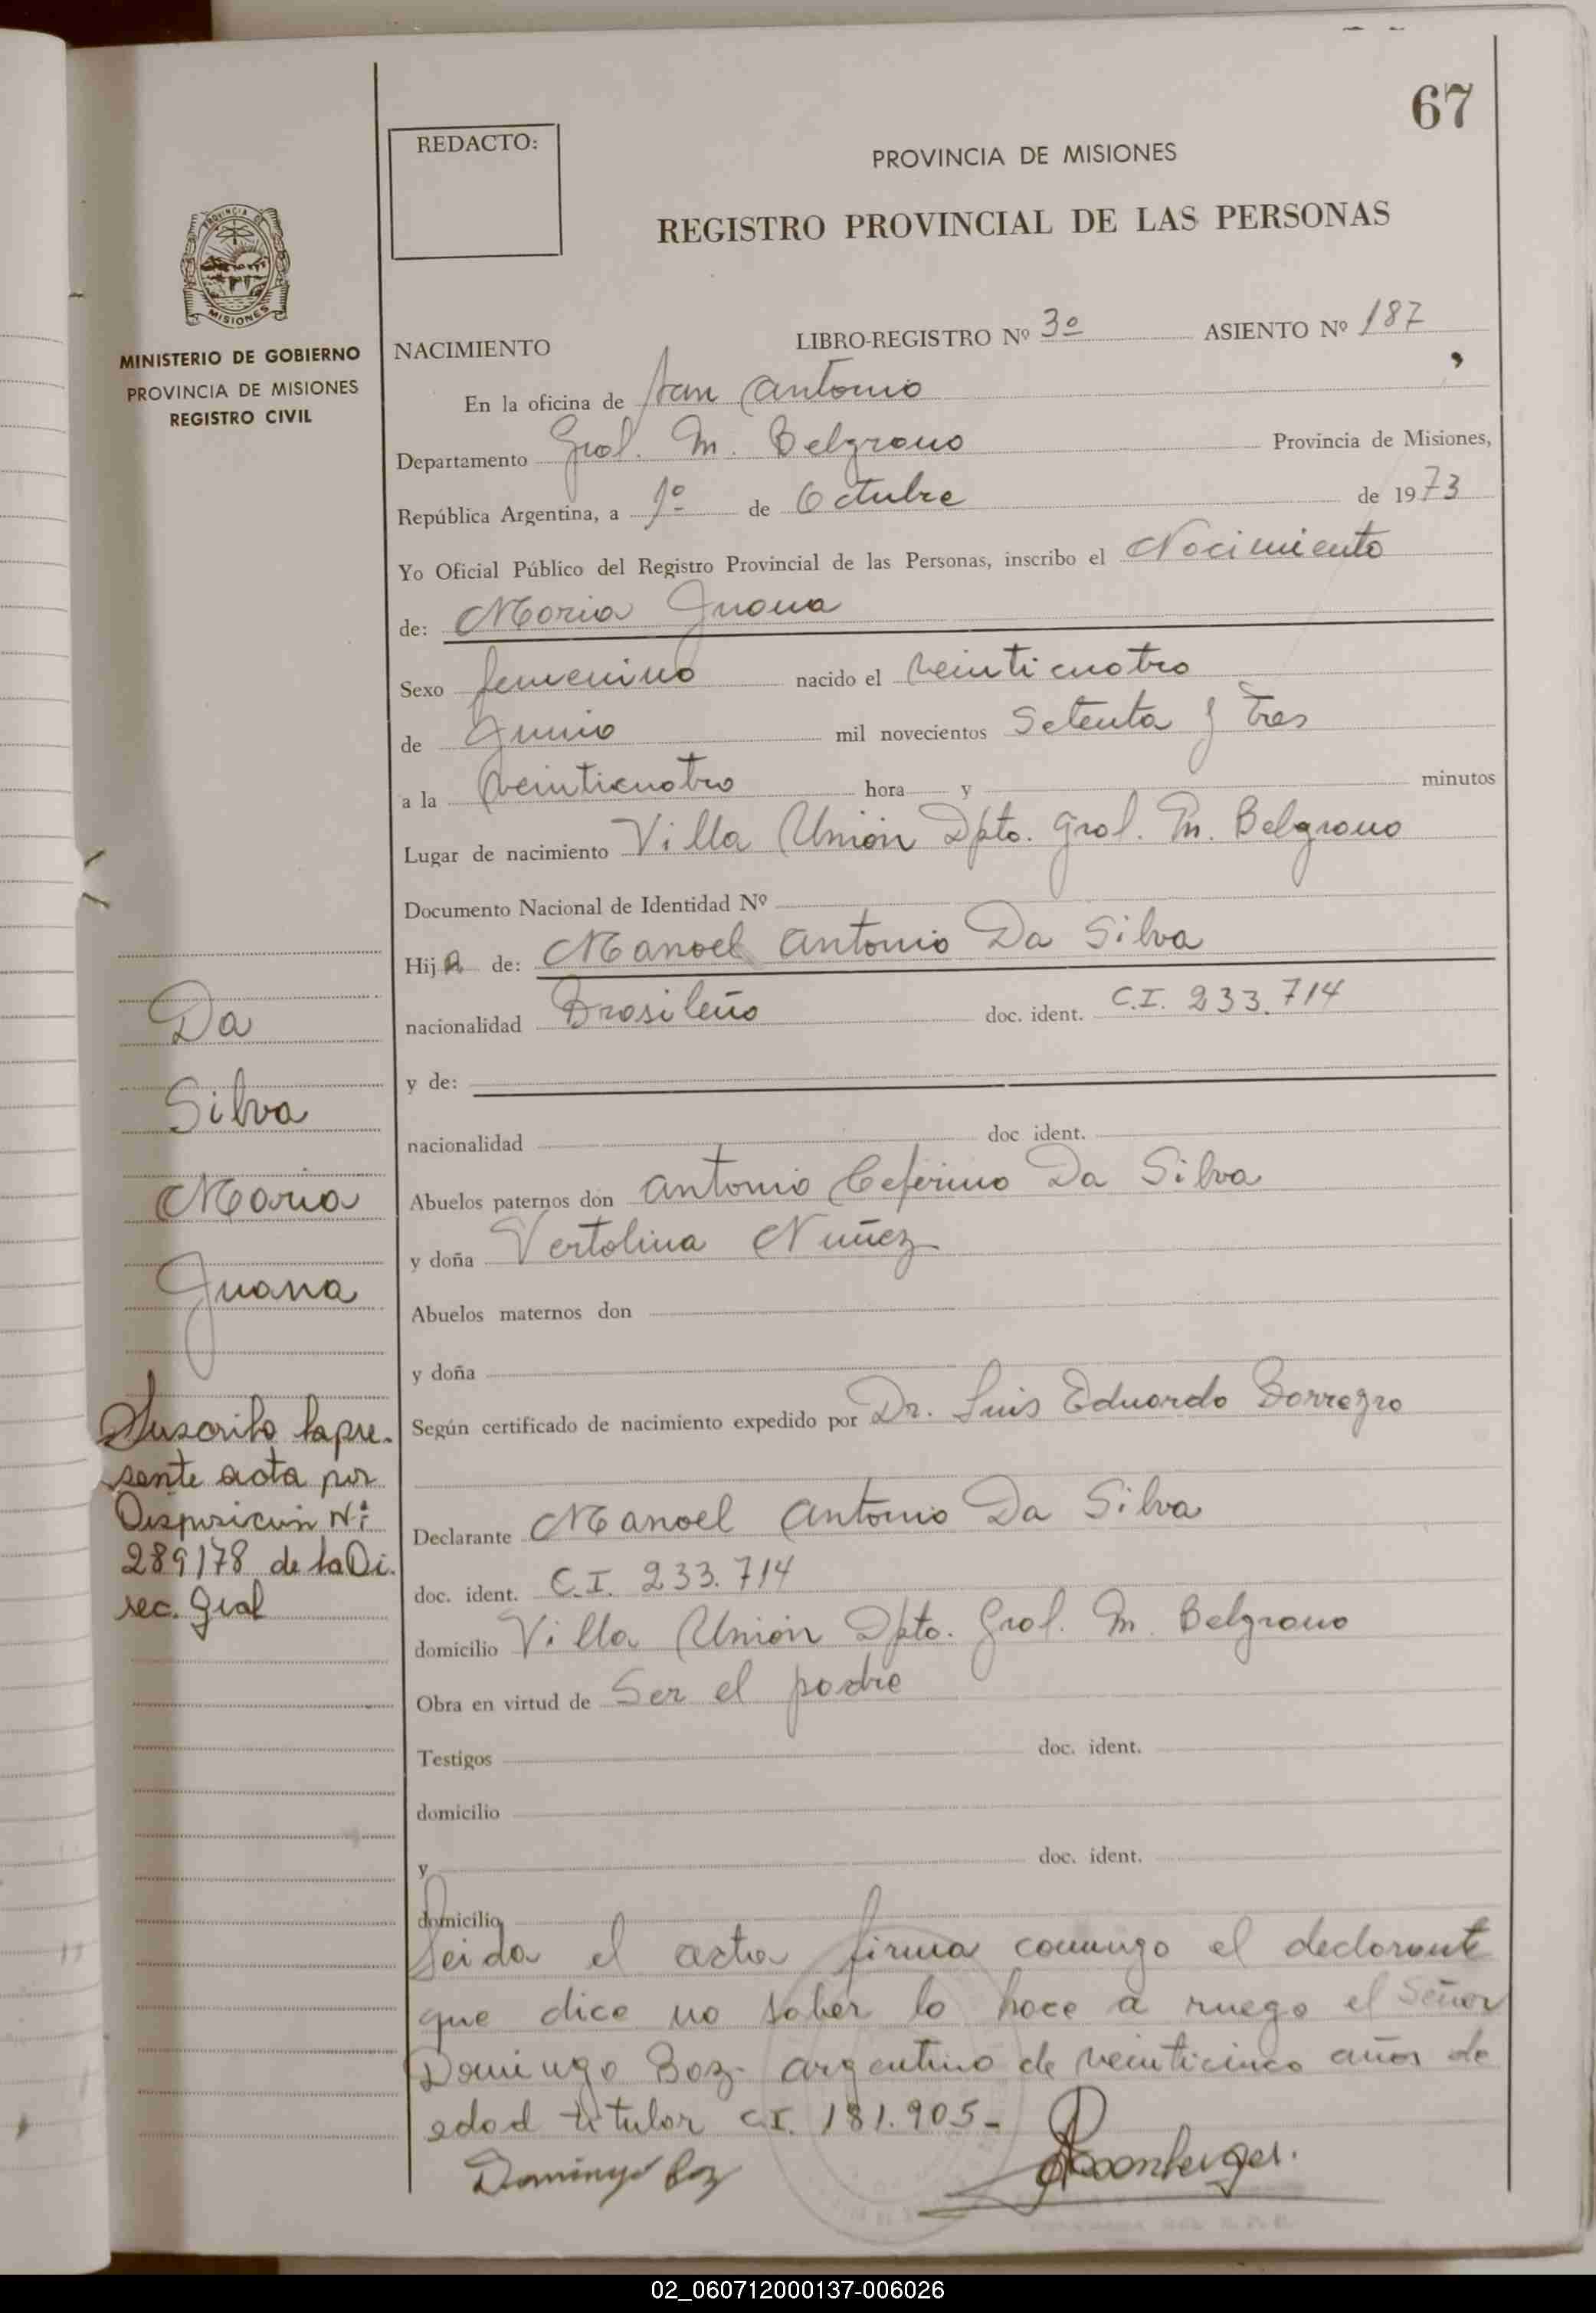 67
REDACTO:
PROVINCIA DE MISIONES
REGISTRO PROVINCIAL DE LAS PERSONAS
PROVINCIA DE
MISIONES
MINISTERIO DE GOBIERNO
PROVINCIA DE MISIONES
REGISTRO CIVIL
NACIMIENTO LIBRO-REGISTRO Nº 3º ASIENTO Nº 187
En la oficina de San Antonio ,
Departamento Gral. M. Belgrano Provincia de Misiones,
República Argentina, a 1º de Octubre de 1973
Yo Oficial Público del Registro Provincial de las Personas, inscribo el Nacimiento
de: Maria Juana
Sexo femenino nacido el veinticuatro
de Junio mil novecientos Setenta y Tres
a la veinticuatro hora y minutos
Lugar de nacimiento Villa Unión Dpto. Gral. M. Belgrano
Documento Nacional de Identidad Nº
Hija de: Manoel Antonio Da Silva
nacionalidad Brasileño doc. ident. C.I. 233.714
y de:
nacionalidad doc ident.
Abuelos paternos don Antonio Ceferino Da Silva
y doña Vertolina Nuñez
Abuelos maternos don
y doña
Según certificado de nacimiento expedido por Dr. Luis Eduardo
Declarante Manoel Antonio Da Silva
doc. ident. C.I. 233.714
domicilio Villa Unión Dpto. Gral. M. Belgrano
Obra en virtud de Ser el padre
Testigos doc. ident.
domicilio
y doc. ident.
domicilio
Leida el acta firma conmigo el declarante
que dice no saber lo hace a ruego el Señor
Domingo Boz. argentino de veinticinco años de
edad titular C.I. 181.905-
Domingo Boz
Da
Silva
Maria
Juana
Suscrito la pre-
sente acta por
Disposición Nº
289/78 de la Di-
rec. Gral
02_060712000137-006026